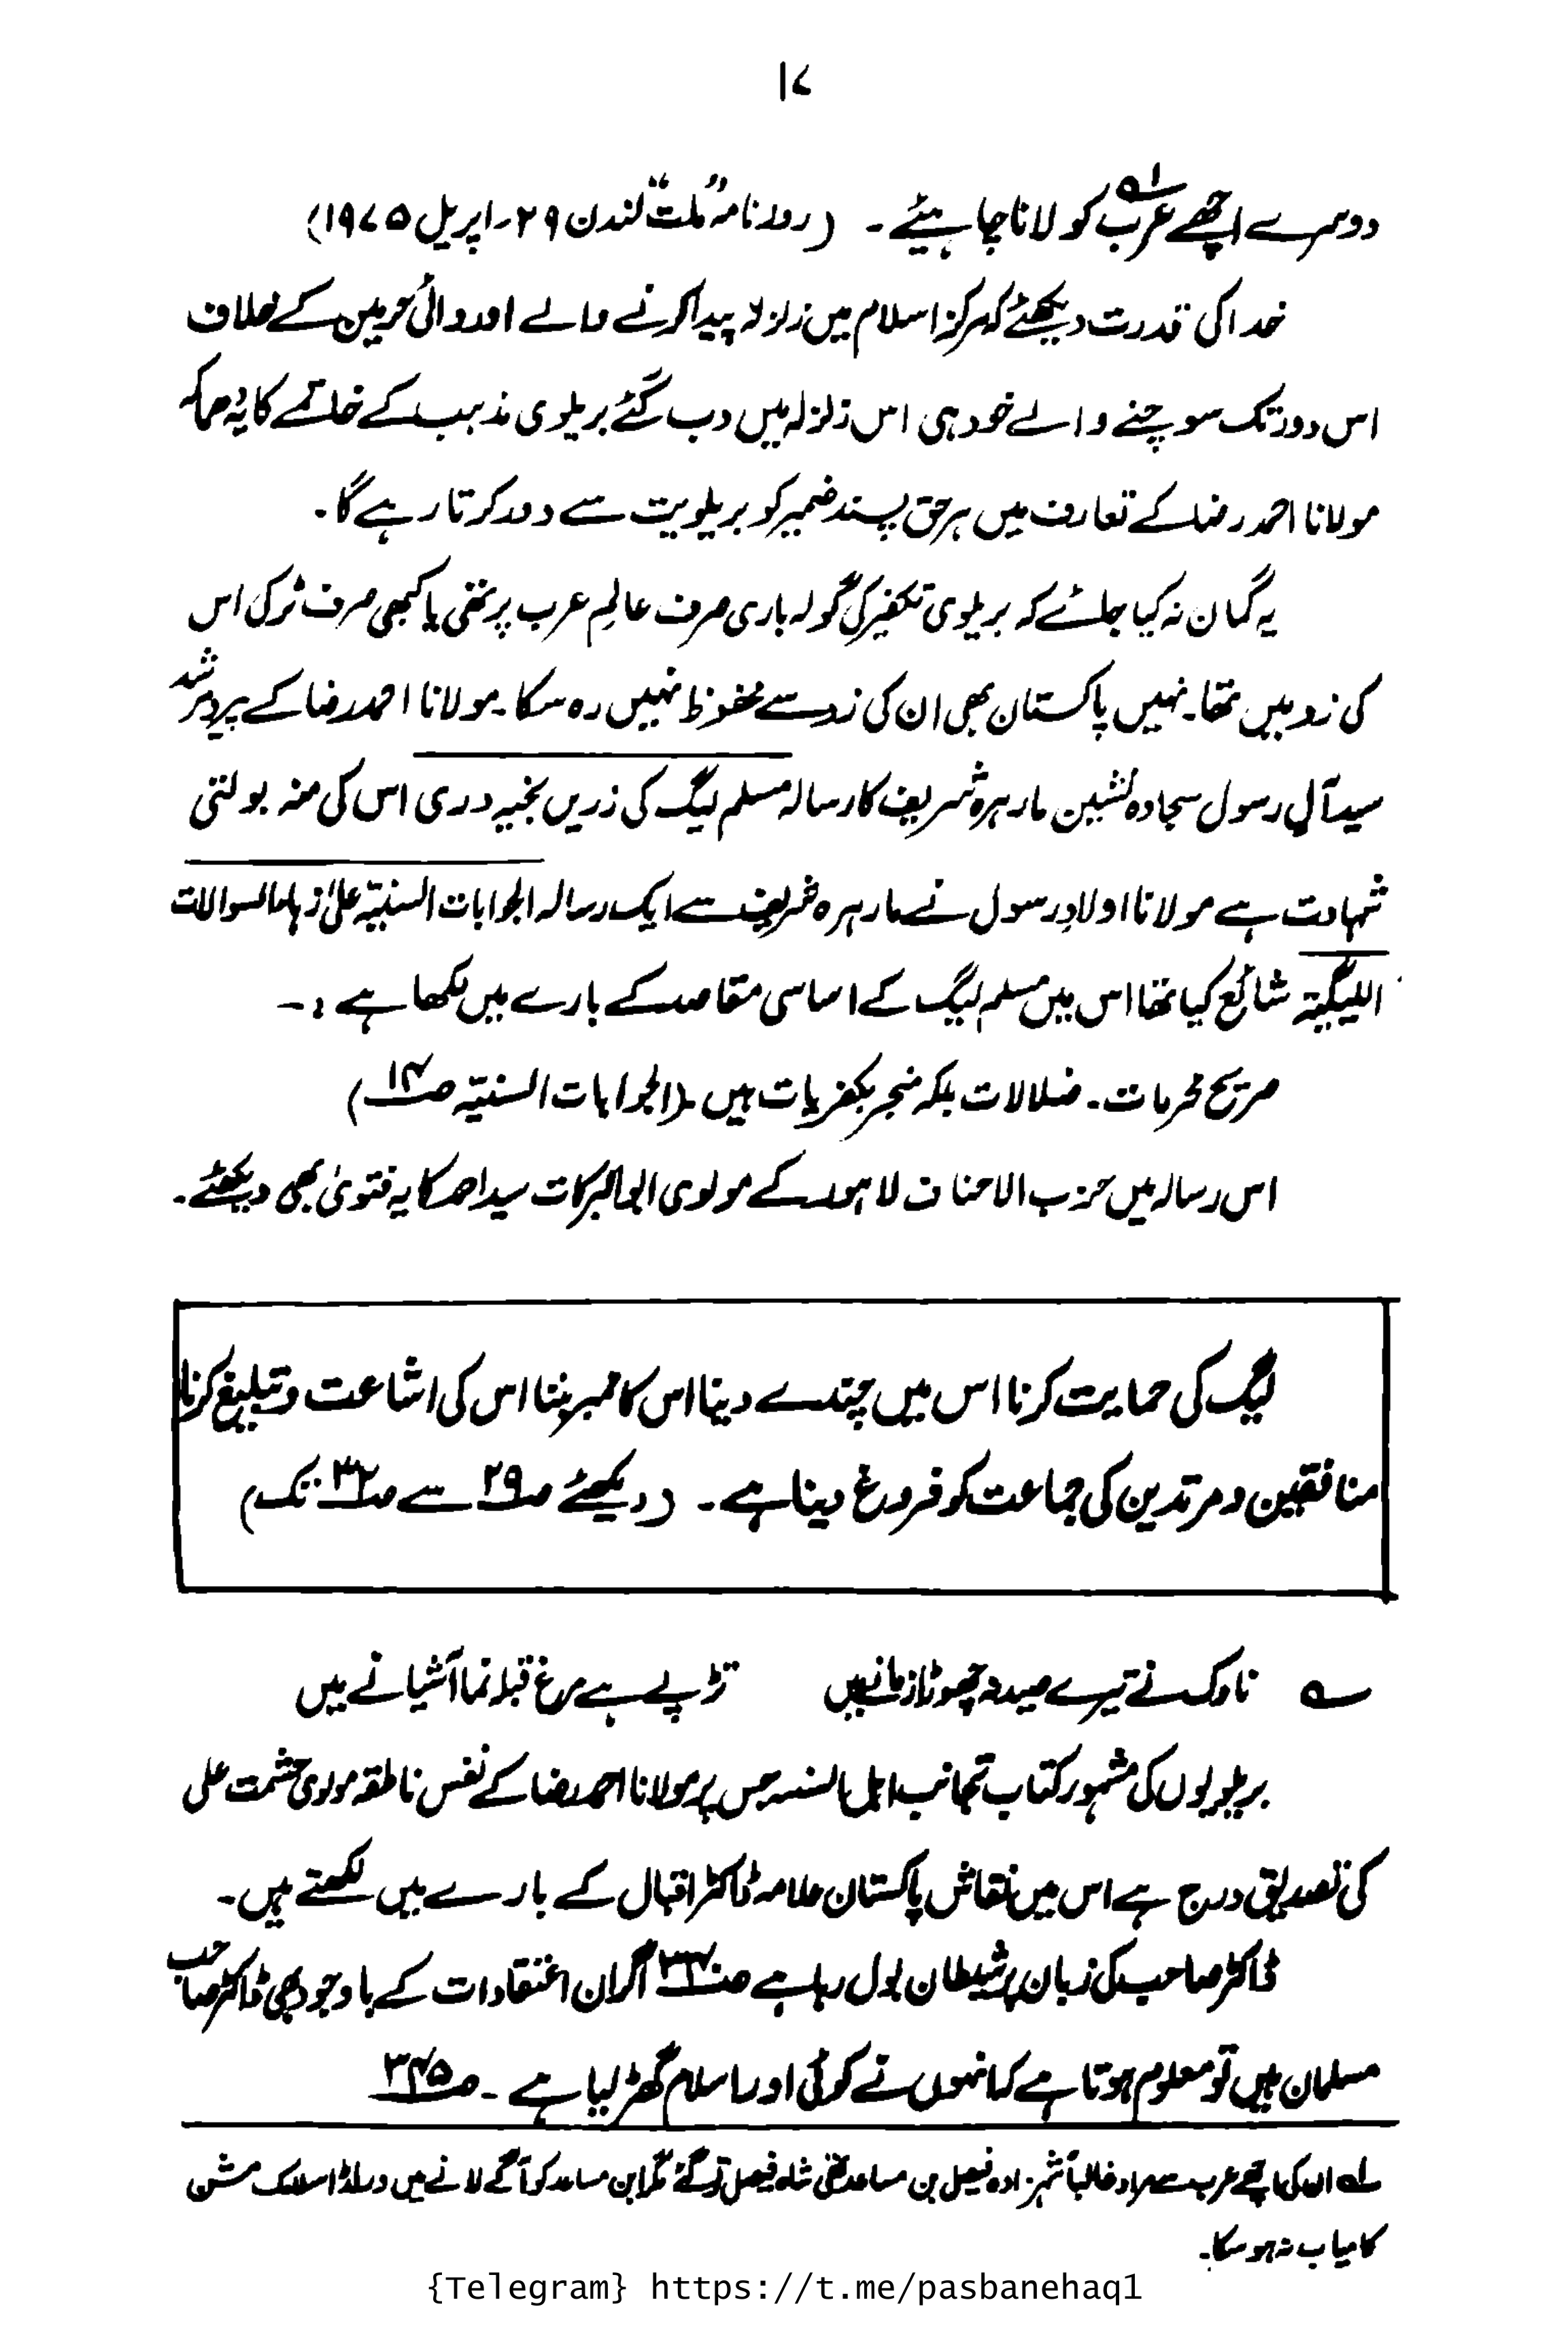 ۱۷
دوسرے اچھے عرب لہ کو لانا چاہیئے ۔ (روزنامہ "ملت" لندن ۲۹ ۔ اپریل ۱۹۷۵)
خدا کی قدرت دیکھئے کہ مرکز اسلام میں زلزلہ پیدا کرنے والے اور والئ حرمین کے خلاف
اس دور تک سوچنے والے خود ہی اس زلزلہ میں دب گئے بریلوی مذہب کے خاتمے کا یہ
مولانا احمد رضا کے تعارف میں ہر حق پسند ضمیر کو بریلویت سے دور کرتا رہے گا ۔
یہ گمان نہ کیا جائے کہ بریلوی تکفیر کی گولہ باری صرف عالمِ عرب پر تھی یا کبھی صرف ٹرکی اس
کی زد میں تھا ۔ نہیں پاکستان بھی ان کی زد سے محفوظ نہیں رہ سکا ۔ مولانا احمد رضا کے پیر و مرشد
سید آلِ رسول سجادہ نشین مارہرہ شریف کا رسالہ مسلم لیگ کی زریں بخیہ دری اس کی منہ بولتی
شہادت ہے مولانا اولادِ رسول نے مارہرہ شریف سے ایک رسالہ الجوابات السنیّہ علیٰ زہاء السوالات
اللیگیہ شائع کیا تھا اس میں مسلم لیگ کے اساسی مقاصد کے بارے میں لکھا ہے :۔
صریح محرمات ۔ ضلالات بلکہ منجر بکفریات ہیں ۔ (الجوابات السنیّہ صـ۱۴)
اس رسالہ میں حزب الاحناف لاہور کے مولوی ابوالبرکات سید احمد کا یہ فتویٰ بھی دیکھئے ۔
لیگ کی حمایت کرنا اس میں چندے دینا اس کا ممبر بننا اس کی اشاعت و تبلیغ کرنا
منافقین و مرتدین کی جماعت کو فروغ دینا ہے ۔ (دیکھئے صـ۲۹ سے صـ۳۲ تک)
؎ ناوک نے تیرے صید نہ چھوڑا زمانے میں تڑپے ہے مرغ قبلہ نما آشیانے میں
بریلویوں کی مشہور کتاب تجانب اہل السنہ جس پر مولانا احمد رضا کے نفس ناطقہ مولوی حشمت علی
کی تصدیق درج ہے اس میں نقاش پاکستان علامہ ڈاکٹر اقبال کے بارے میں لکھتے ہیں ۔
ڈاکٹر صاحب کی زبان پر شیطان بول رہا ہے اگر ان اعتقادات کے باوجود بھی ڈاکٹر صاحب
مسلمان ہیں تو معلوم ہوتا ہے کہ انہوں نے کوئی اور اسلام گھڑ لیا ہے ۔ صـ۳۴۵
لہ ان کی اچھے عرب سے مراد غالباً شہزادہ فیصل بن مساعد تھی شاہ فیصل تو گئے مگر ابن مساعد کو آگے لانے میں ورلڈ اسلامک مشن
کامیاب نہ ہو سکا ۔
{Telegram} https://t.me/pasbanehaq1